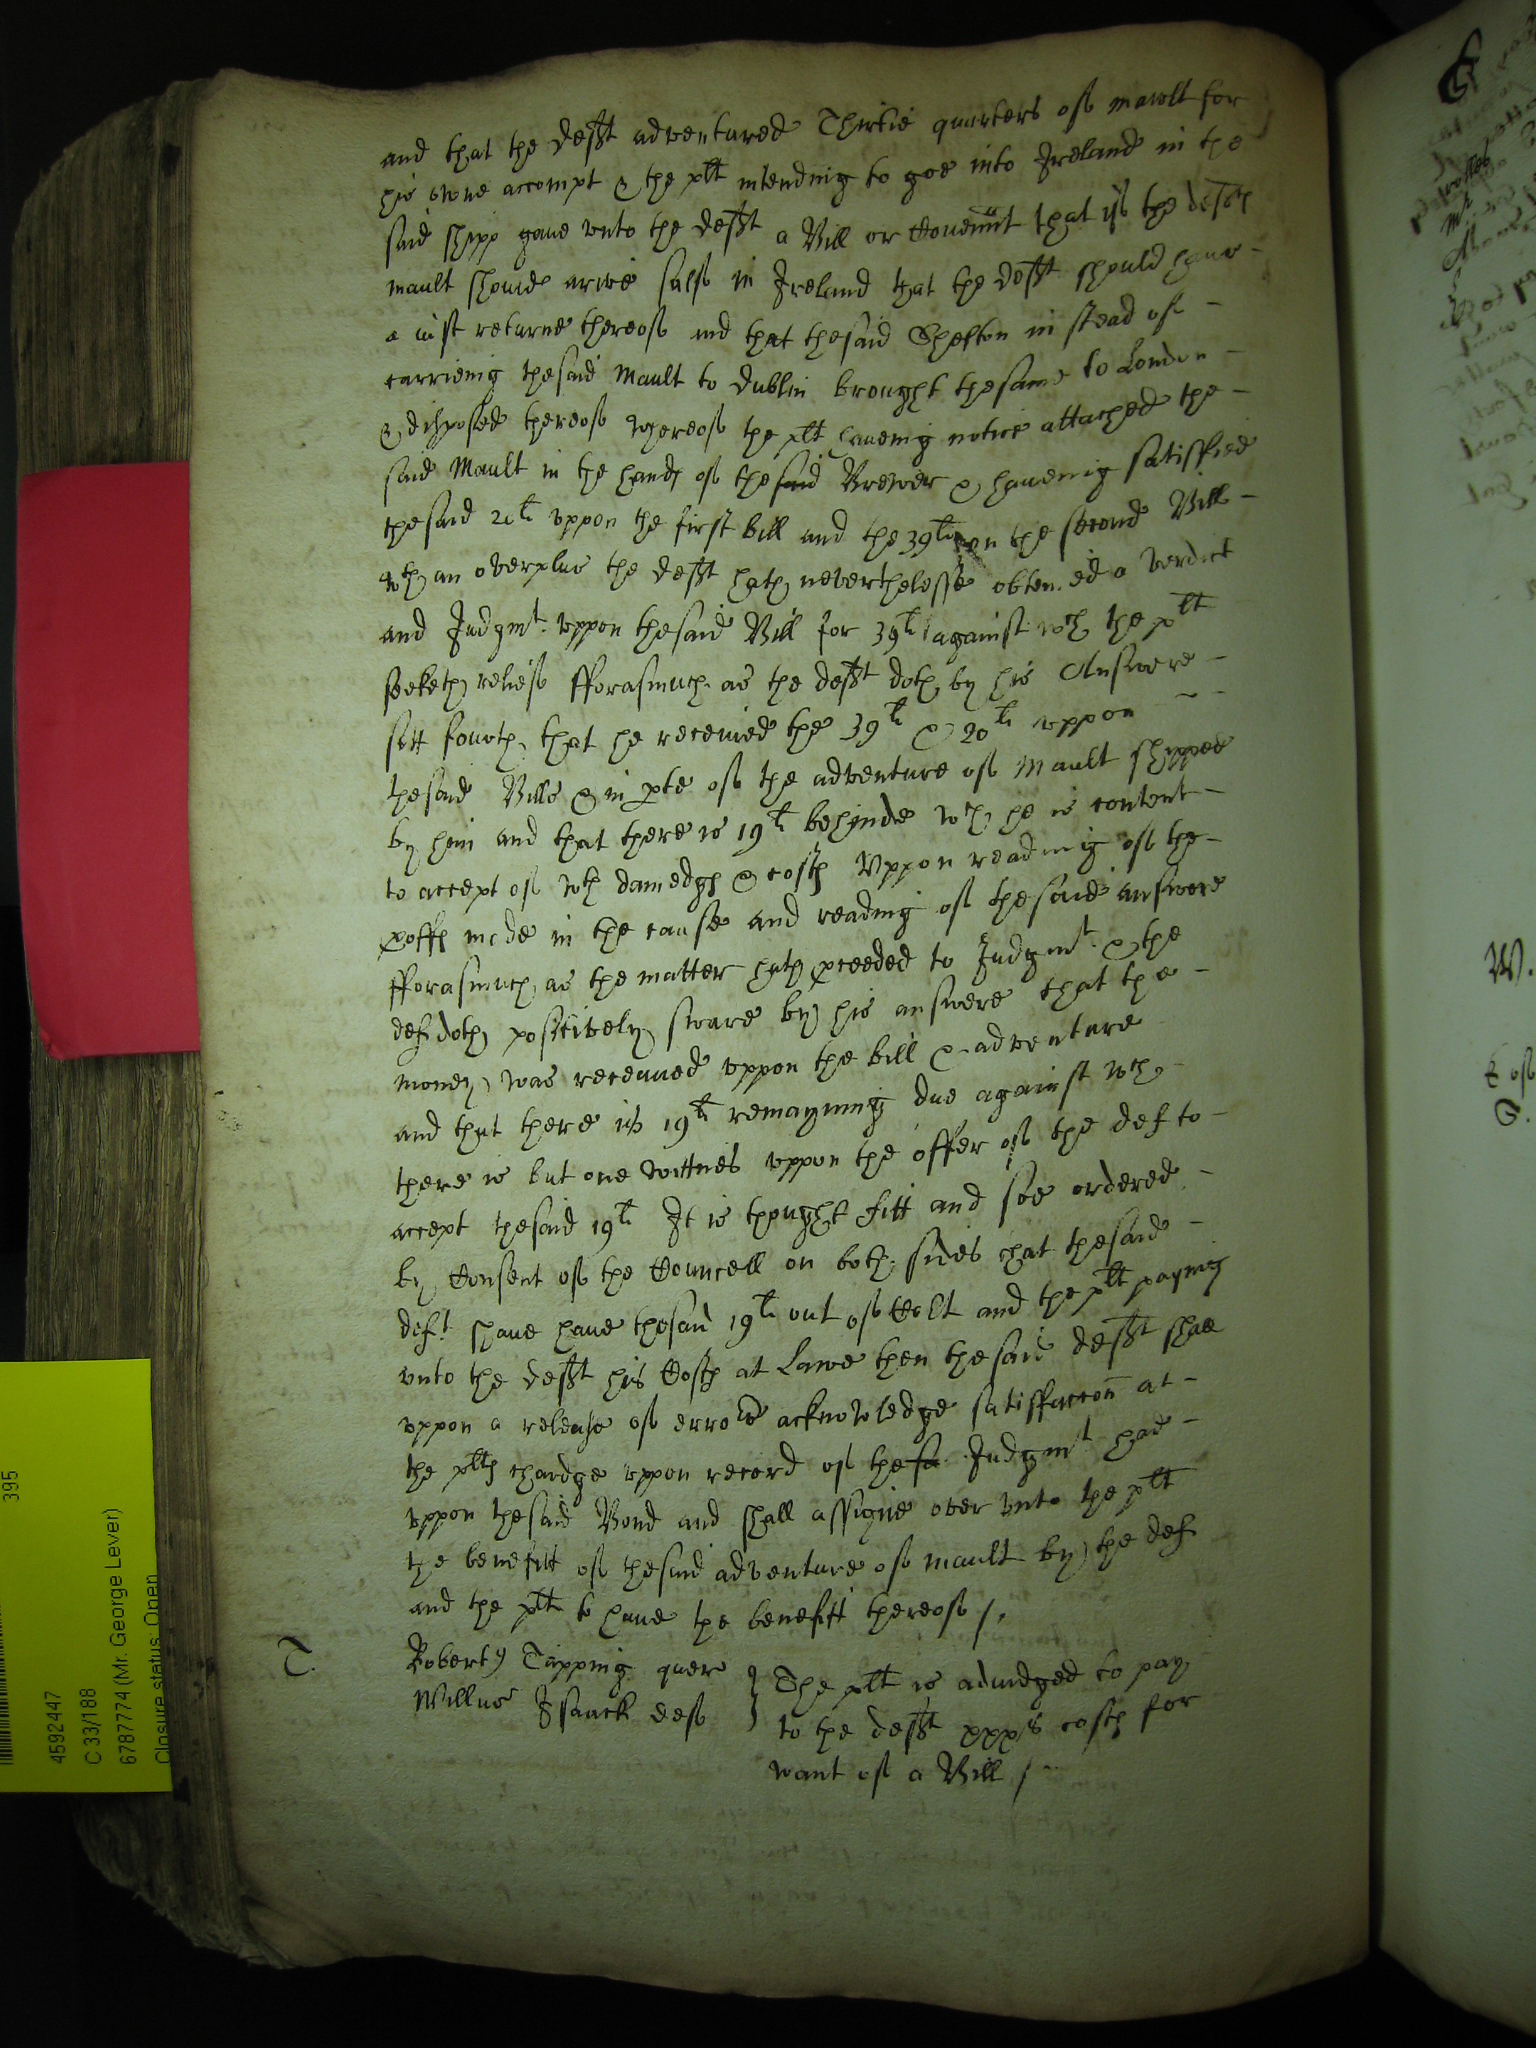 and that the deft adventured Thirtie quarters of mault for
his owne accompt & the plt intending to goe into Ireland in the
said shipp gave unto the deft a Bill or Covenut that if the defts
mault should arive safe in Ireland that the deft should have
a iust returne thereof and that the said Shelton in stead of
carrieing the said Mault to Dublin brought the same to London
& disposed thereof Whereof the plt haveing notice attached the
said Mault in the hands of the said Brewer & haveing satisfied
the said 20li uppon the first bill and the 39li on the second Bill
wth an overplus the deft hath neverthelesse obteined a verdict
and Judgmt uppon the said Bill for 39li against wch the plt
seeketh reliefe fforasmuch as the deft doth by his Answere
sett fourth that he received the 39li & 20li uppon
the said Bills & in pte of the adventure of Mault shipped
by him and that there is 19li behinde wch he is content
to accept of wth damedgs & costs Uppon reading of the
proffs made in the cause and reading of the said answere
fforasmuch as the matter hath pceeded to Judgmt & the
def doth positively sware by his answere that the
money was received uppon the bill & adventure
and that there is 19li remayning due against wch
there is but one wittnes uppon the offer of the def to
accept the said 19li It is thought fitt and soe ordered
by Consent of the Councell on both sides that the said
deft shave have the said 19li out of Co͞rt and the plt paying
unto the deft his Costs at Lawe then the said deft shall
uppon a release of erro͞rs acknowledge satisfaccon at
the plts chardge uppon record of the sa Judgmt had
uppon the said Bond and shall assigne over unto the plt
the benefitt of the said adventure of mault by the def
and the plt to have the benefitt thereof /.
T.
Robertus Tapping quer
Willus Isaack def
The plt is adiudged to pay
to the deft xxxs costs for
want of a Bill /
395
4592447
C 33/188
6787774 (Mr. George Lever)
Closure status: Open
W.